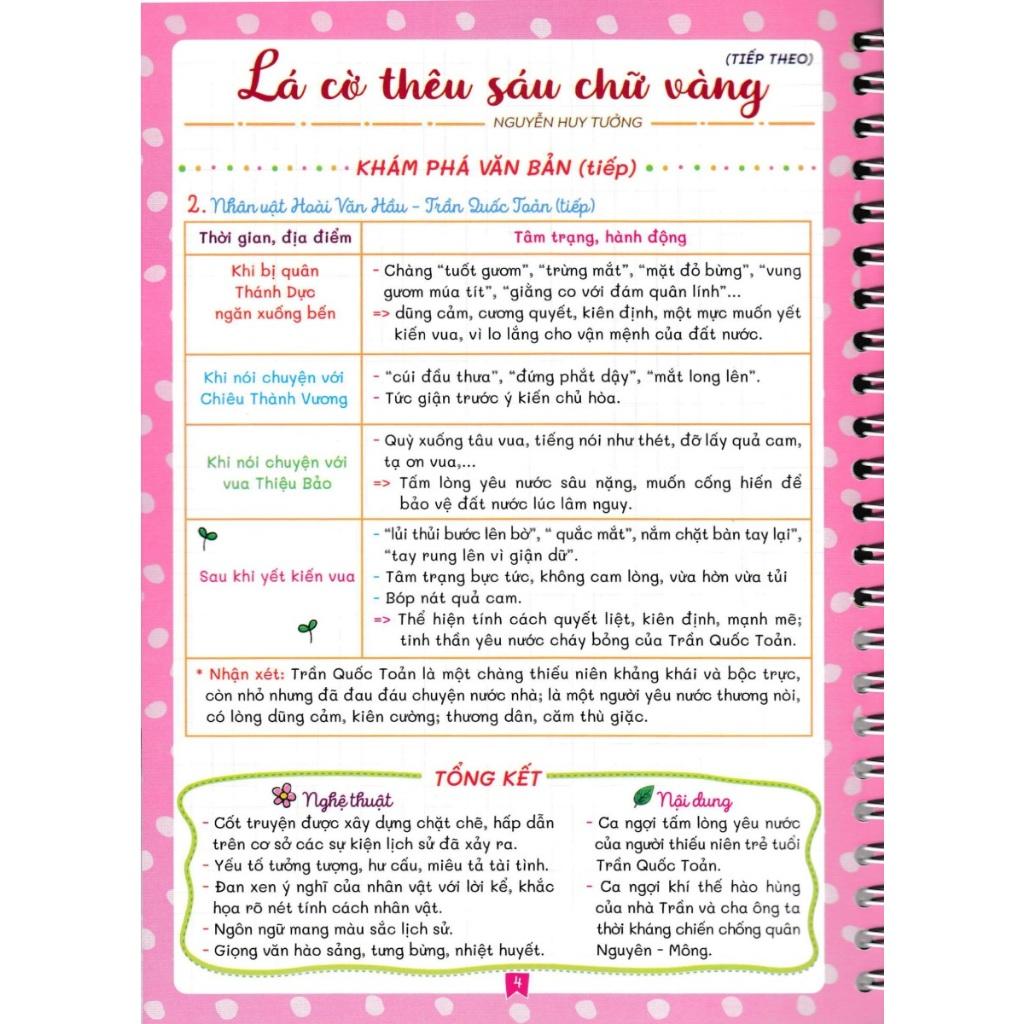 (TIẾP THEO)
Lá cờ thêu sáu chữ vàng
NGUYỄN HUY TƯỞNG
KHÁM PHÁ VĂN BẢN (tiếp)
2. Nhân vật Hoài Văn Hầu - Trần Quốc Toản (tiếp)
Thời gian, địa điểm
Tâm trạng, hành động
Khi bị quân
Thánh Dực
ngăn xuống bến
- Chàng “tuốt gươm”, “trừng mắt”, “mặt đỏ bừng”, “vung
gươm múa tít”, “giằng co với đám quân lính”...
=> dũng cảm, cương quyết, kiên định, một mực muốn yết
kiến vua, vì lo lắng cho vận mệnh của đất nước.
Khi nói chuyện với
Chiêu Thành Vương
- “cúi đầu thưa”, “đứng phắt dậy”, “mắt long lên”.
- Tức giận trước ý kiến chủ hòa.
Khi nói chuyện với
vua Thiệu Bảo
- Quỳ xuống tâu vua, tiếng nói như thét, đỡ lấy quả cam,
tạ ơn vua,...
=> Tấm lòng yêu nước sâu nặng, muốn cống hiến để
bảo vệ đất nước lúc lâm nguy.
Sau khi yết kiến vua
- “lủi thủi bước lên bờ”, “ quắc mắt”, nắm chặt bàn tay lại”,
“tay rung lên vì giận dữ”.
- Tâm trạng bực tức, không cam lòng, vừa hờn vừa tủi
- Bóp nát quả cam.
=> Thể hiện tính cách quyết liệt, kiên định, mạnh mẽ;
tinh thần yêu nước cháy bỏng của Trần Quốc Toản.
* Nhận xét: Trần Quốc Toản là một chàng thiếu niên khảng khái và bộc trực,
còn nhỏ nhưng đã đau đáu chuyện nước nhà; là một người yêu nước thương nòi,
có lòng dũng cảm, kiên cường; thương dân, căm thù giặc.
TỔNG KẾT
Nghệ thuật
- Cốt truyện được xây dựng chặt chẽ, hấp dẫn
trên cơ sở các sự kiện lịch sử đã xảy ra.
- Yếu tố tưởng tượng, hư cấu, miêu tả tài tình.
- Đan xen ý nghĩ của nhân vật với lời kể, khắc
họa rõ nét tính cách nhân vật.
- Ngôn ngữ mang màu sắc lịch sử.
- Giọng văn hào sảng, tưng bừng, nhiệt huyết.
Nội dung
- Ca ngợi tấm lòng yêu nước
của người thiếu niên trẻ tuổi
Trần Quốc Toản.
- Ca ngợi khí thế hào hùng
của nhà Trần và cha ông ta
thời kháng chiến chống quân
Nguyên - Mông.
4